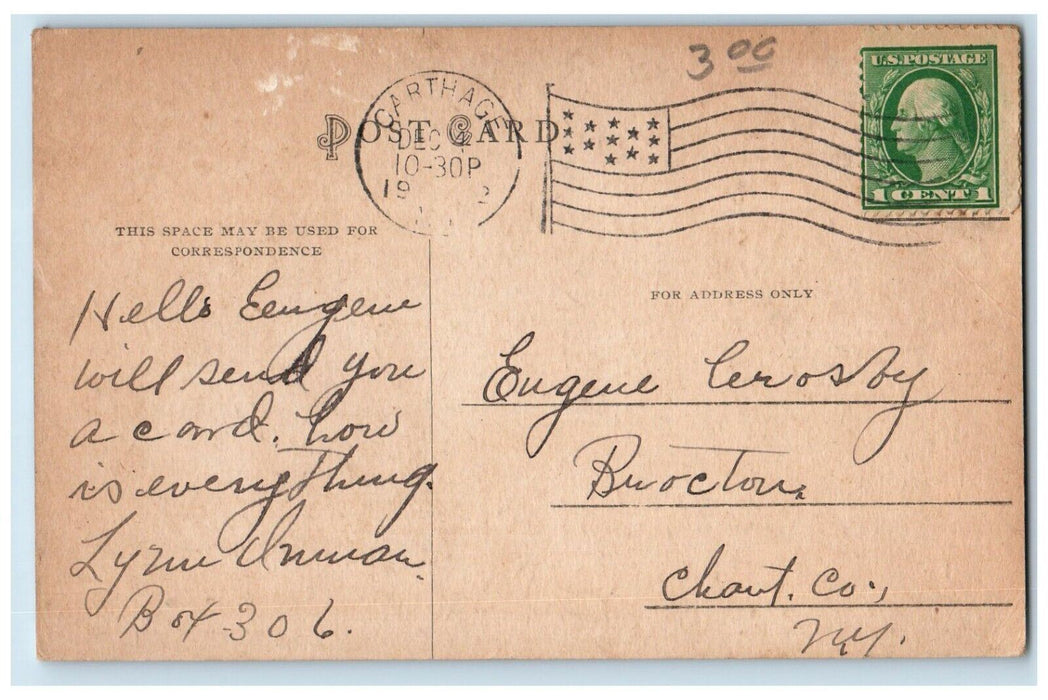 3 00
U.S. POSTAGE
1 CENT 1
CARTHAGE
DEC 4
10-30P
19 2
POST CARD
THIS SPACE MAY BE USED FOR
CORRESPONDENCE
FOR ADDRESS ONLY
Hello Eugene
will send you
a card. how
is everything.
Lynn
Box 306.
Eugene Crosby
Brocton,
Chaut. Co.,
N.Y.